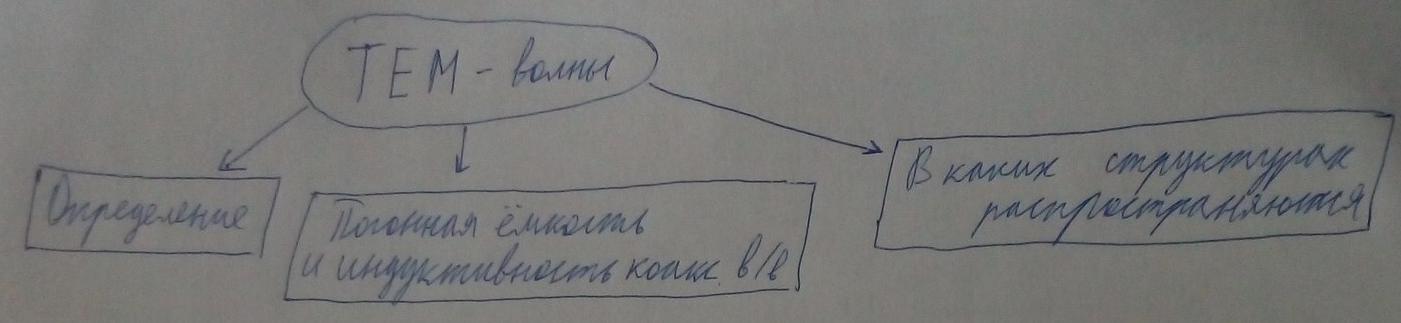 TEM - волны
Определение
Погонная ёмкость
и индуктивность коакс. в/в
В каких структурах
распространяются